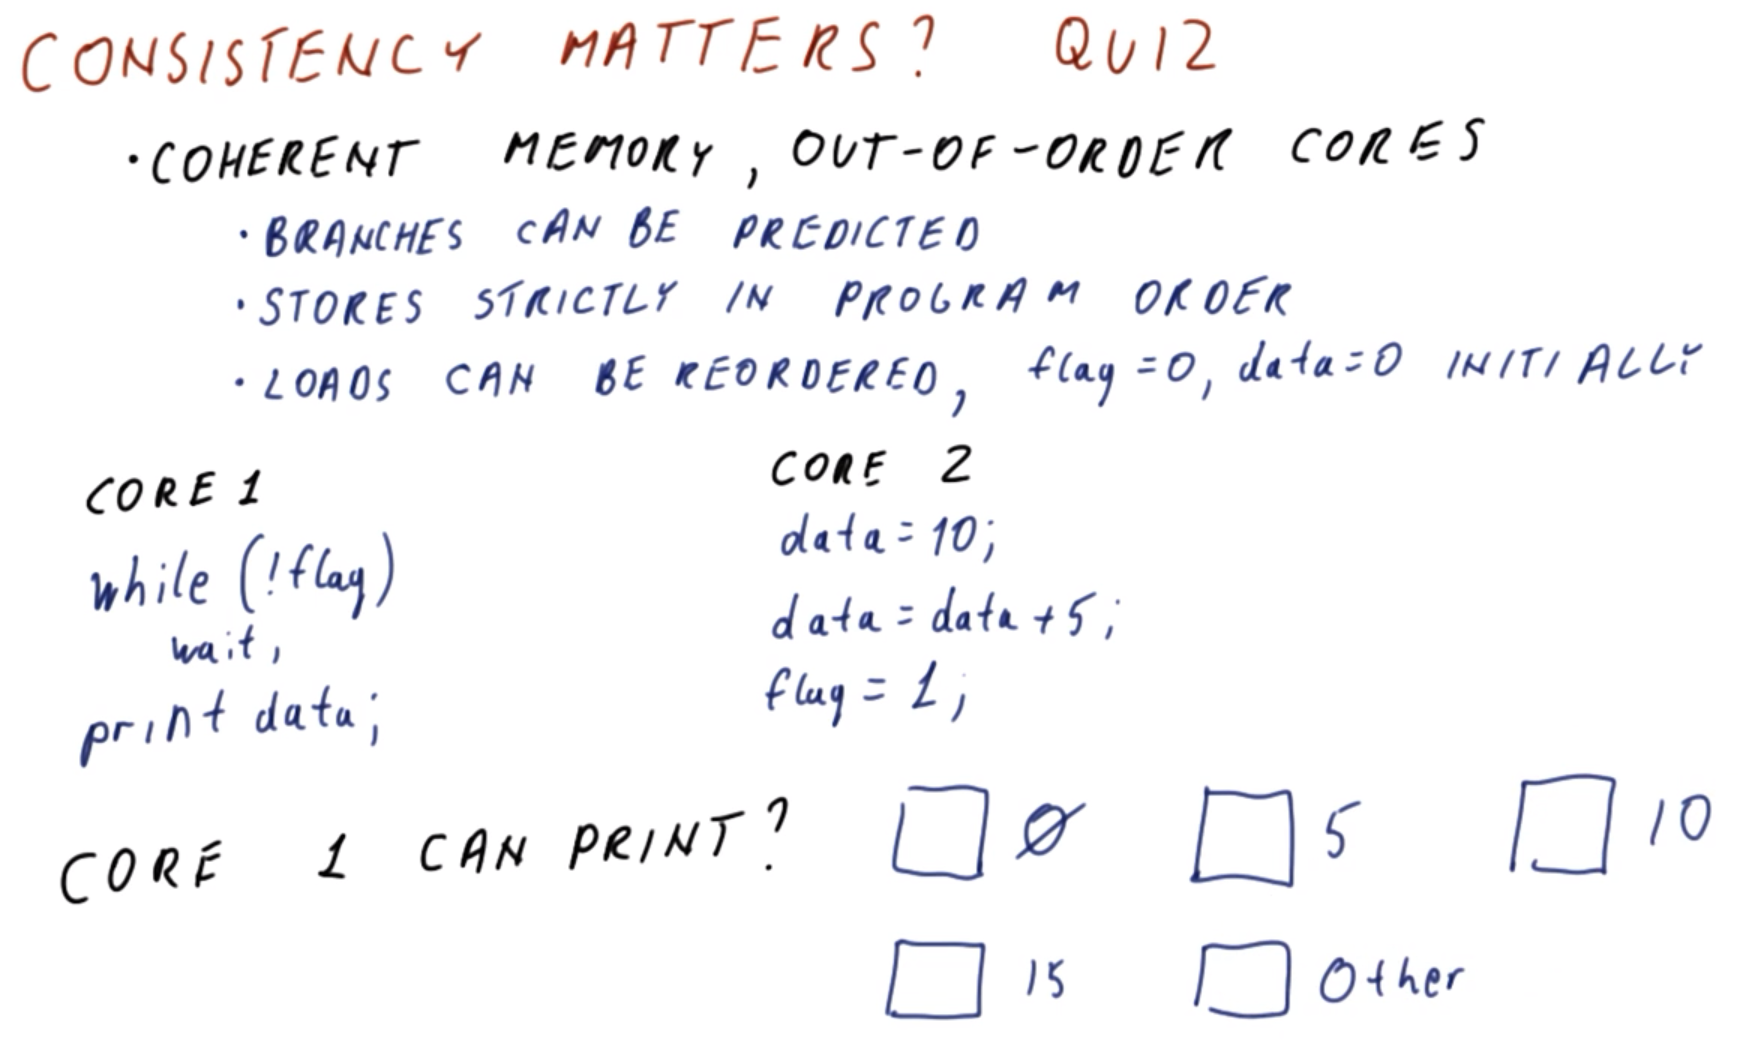 CONSISTENCY MATTERS? QUIZ
• COHERENT MEMORY, OUT-OF-ORDER CORES
• BRANCHES CAN BE PREDICTED
• STORES STRICTLY IN PROGRAM ORDER
• LOADS CAN BE REORDERED, flag=0, data=0 INITIALLY
CORE 1
while (!flag)
wait,
print data;
CORE 2
data = 10;
data = data + 5;
flag = 1;
CORE 1 CAN PRINT?
0 5 10
15 Other